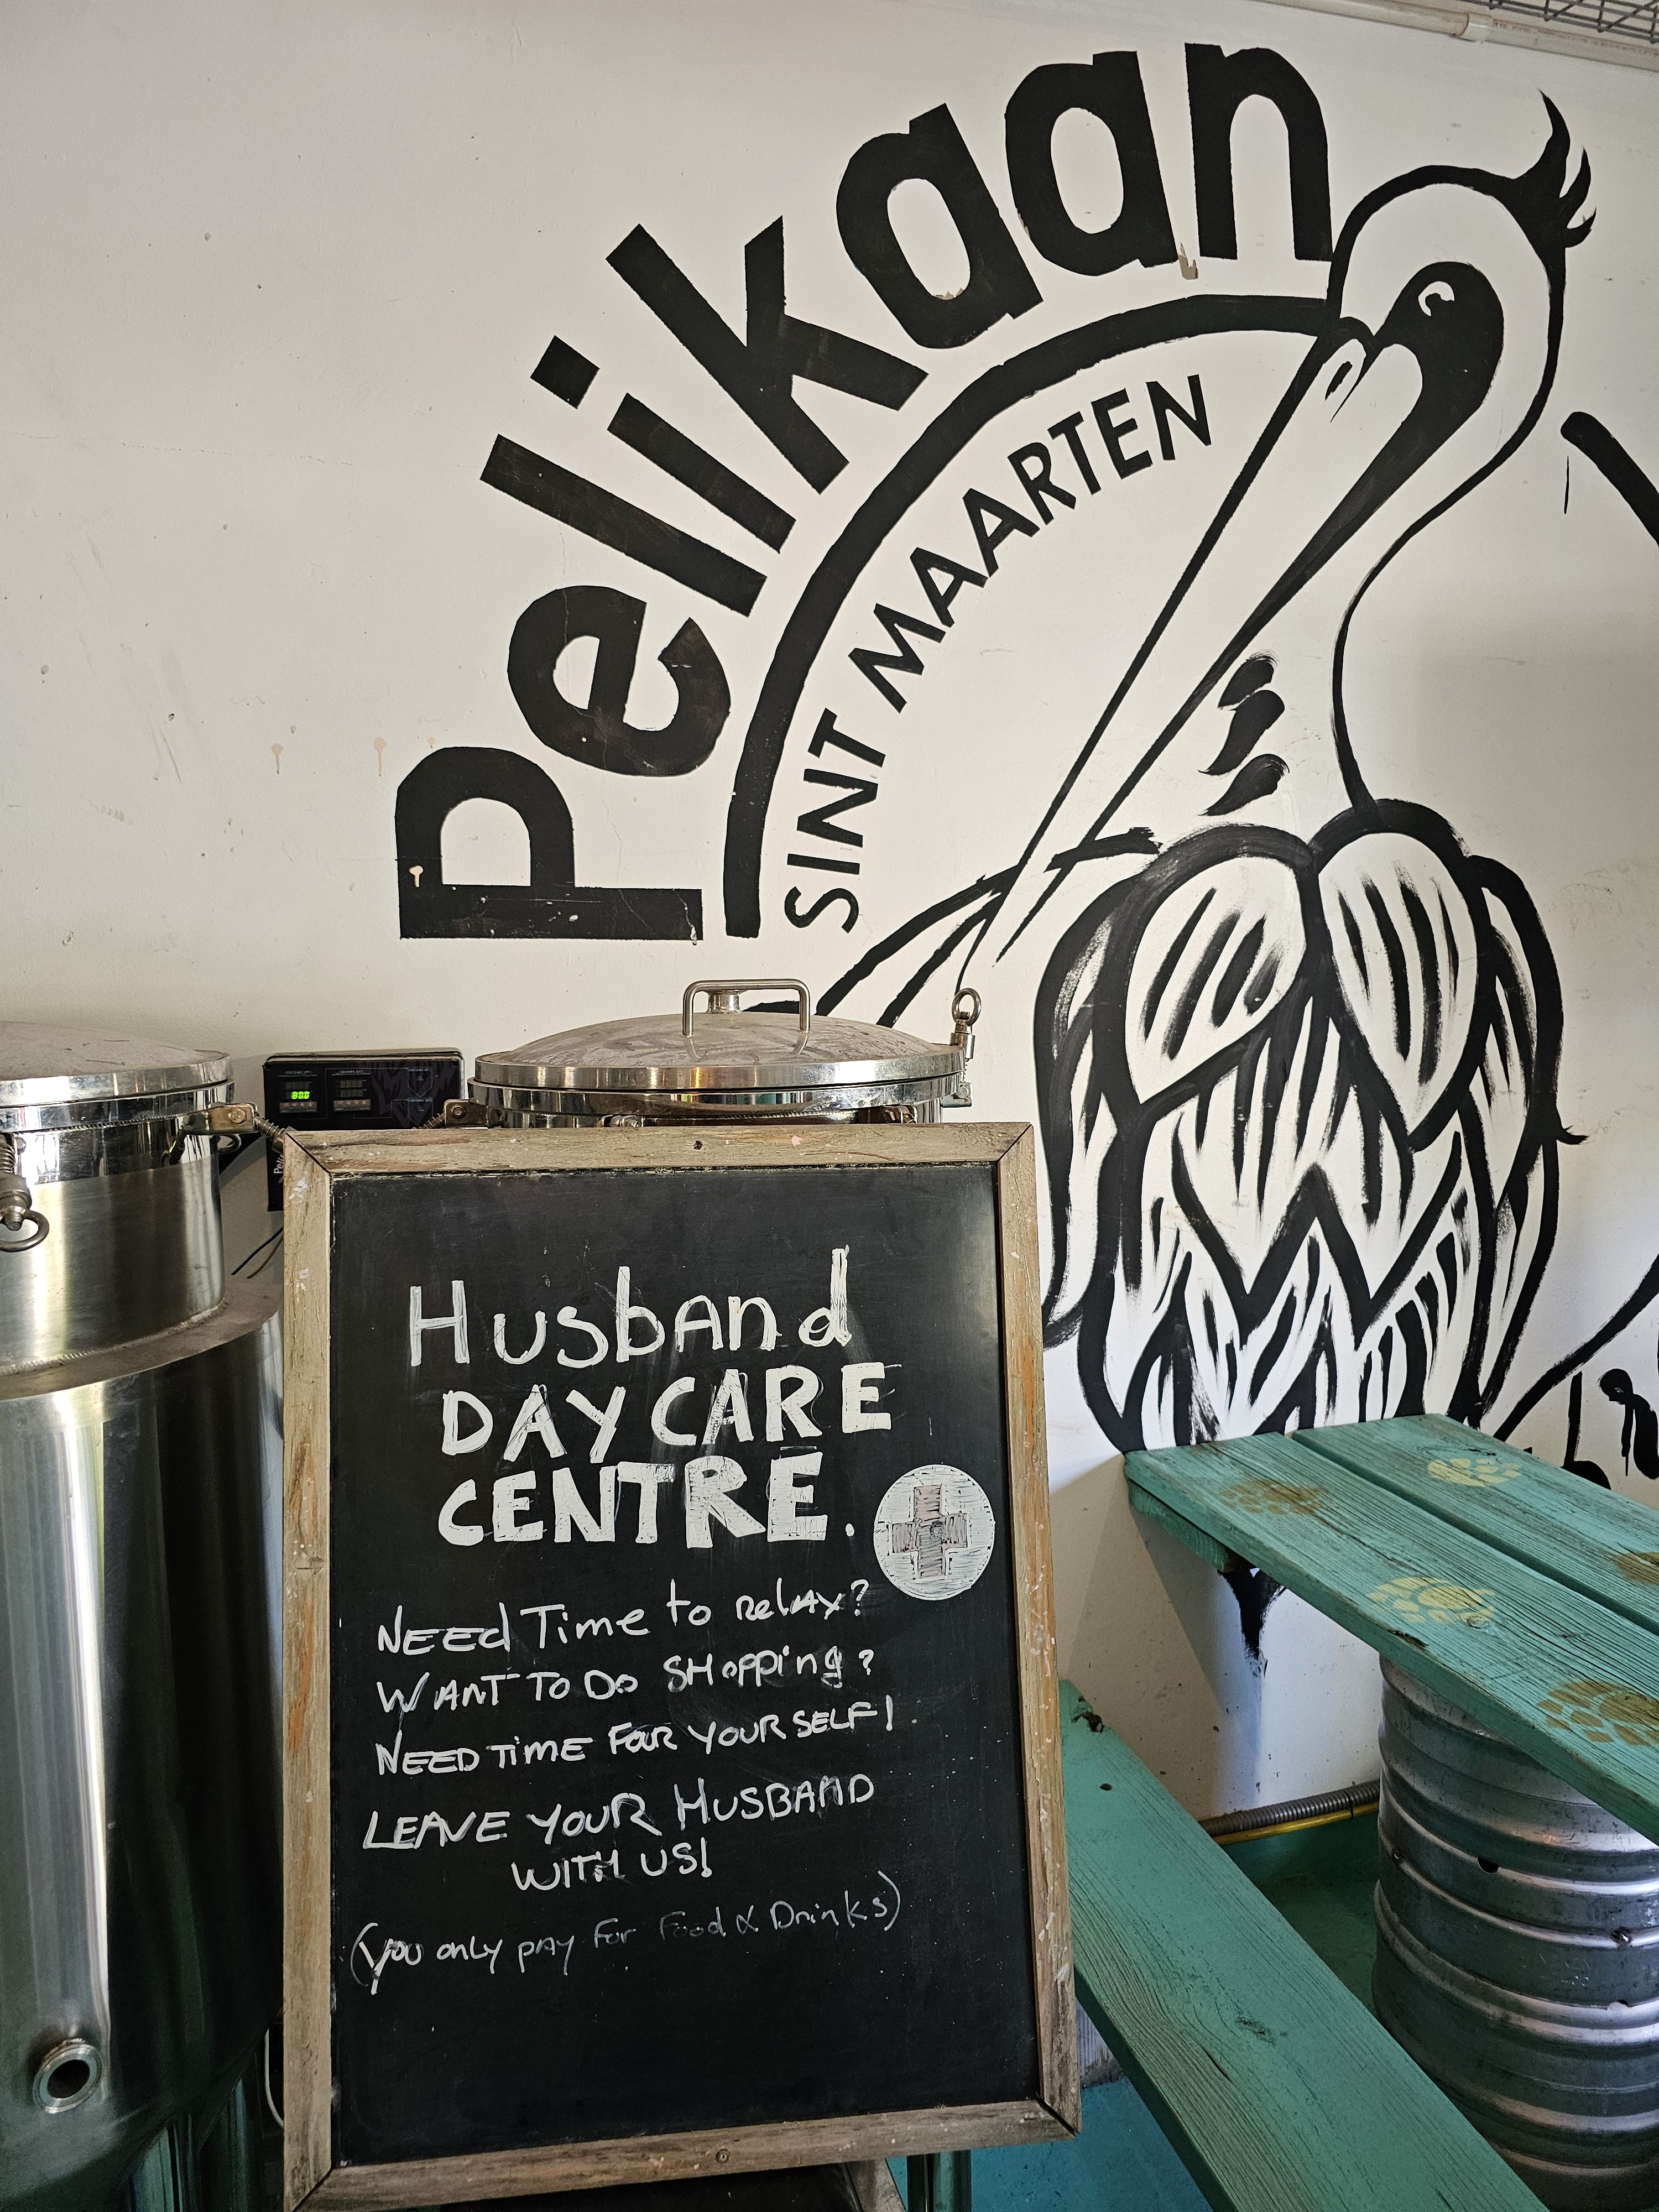 Pelikaan
SINT MAARTEN
HusbAnd
DAYCARE
CENTRE.
NEEd Time to RelAx?
WANT TO DO SHopping?
NEED TiME FOUR YOUR SELF!
LEAVE YOUR HUSBAND
WITH US!
(You only pay For Food & Drinks)